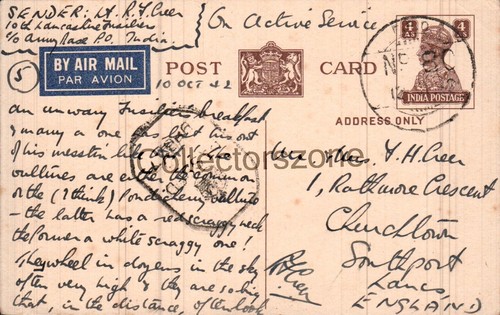 SENDER: Lt. R.Y. Creer
10th Lancashire Fusiliers
c/o Army Base P.O. India
On Active Service
5
BY AIR MAIL
PAR AVION
10 OCT 42
POST CARD
4 AS
4 AS
INDIA POSTAGE
ADDRESS ONLY
an unwary Fusilier's breakfast
& many a one has lost this out
of his messtin
vultures are either the common
or the (I think) Pondicherry vulture
– the latter has a red scraggy neck
the former a white scraggy one!
They wheel in dozens in the sky
often very high & they are so big
that, in the distance, often look
Mrs. Y. H. Creer
1, Rathmore Crescent
Churchtown
Southport
Lancs
ENGLAND
Collectorszone